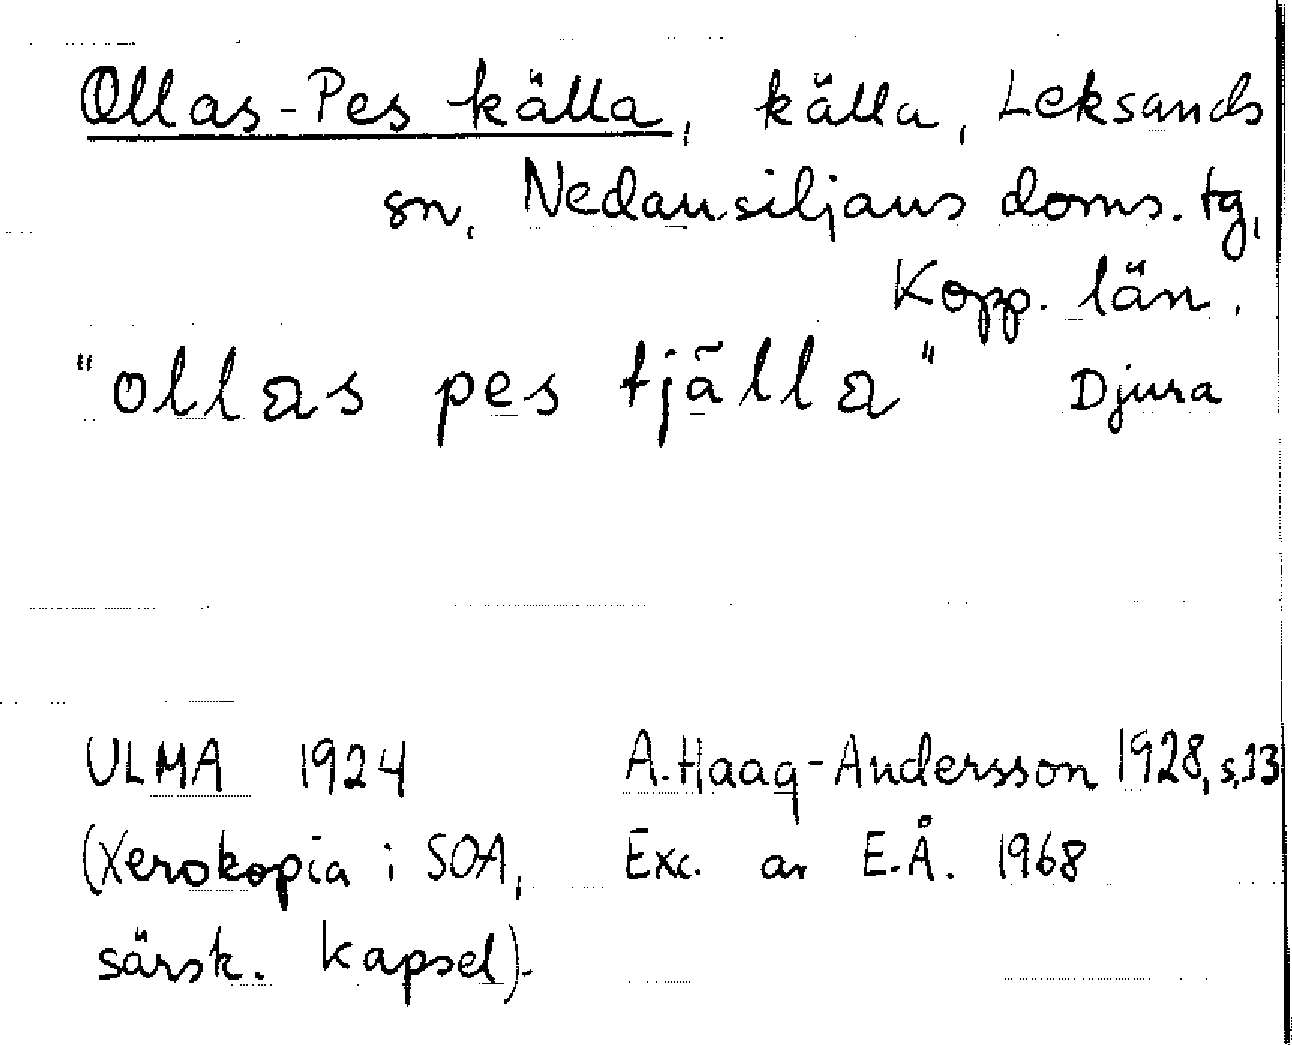 Ollas-Pes källa, källa, Leksands
sn, Nedansiljans doms. tg,
Kopp. län.
"ollas pes tjälla" Djura
ULMA 1924 A. Haag-Andersson 1928, s. 13
(Xerokopia i SOA, Exc. av E.Å. 1968
särsk. kapsel).